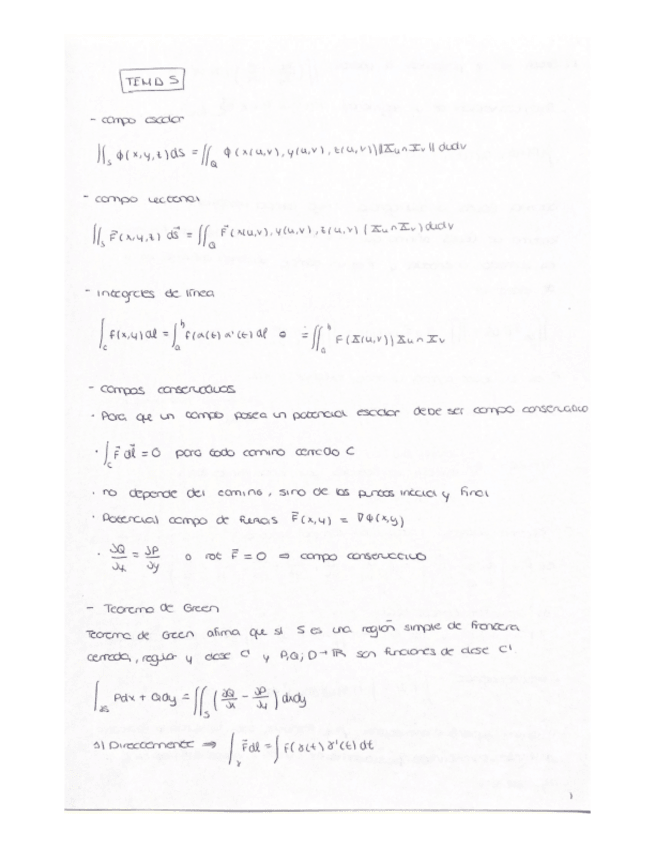 TEMA 5
- campo escalar
∬_S ϕ(x,y,z)dS = ∬_Q ϕ(x(u,v), y(u,v), z(u,v)) ||X_u ∧ X_v|| dudv
- campo vectorial
∬_S F⃗(x,y,z) dS⃗ = ∬_Q F⃗(x(u,v), y(u,v), z(u,v)) (X_u ∧ X_v) dudv
- integrales de línea
∫_C f(x,y)dl = ∫_a^b f(α(t)) α'(t) dl o = ∬_a^b F(X(u,v)) X_u ∧ X_v
- campos conservativos
· Para que un campo posea un potencial escalar debe ser campo conservativo
· ∫_C F⃗ dl⃗ = 0 para todo camino cerrado C
· no depende del camino, sino de los puntos inicial y final
· Potencial campo de fuerzas F⃗(x,y) = ∇ϕ(x,y)
· ∂Q/∂x = ∂P/∂y o rot F⃗ = 0 ⇒ campo conservativo
- Teorema de Green
Teorema de Green afirma que si S es una región simple de frontera
cerrada, regular y clase C¹ y P,Q; D→ℝ son funciones de clase C¹
∫_∂S Pdx + Qdy = ∬_S (∂Q/∂x - ∂P/∂y) dxdy
a) Directamente ⇒ ∫_γ F⃗dl = ∫ F(γ(t)) γ'(t) dt
1